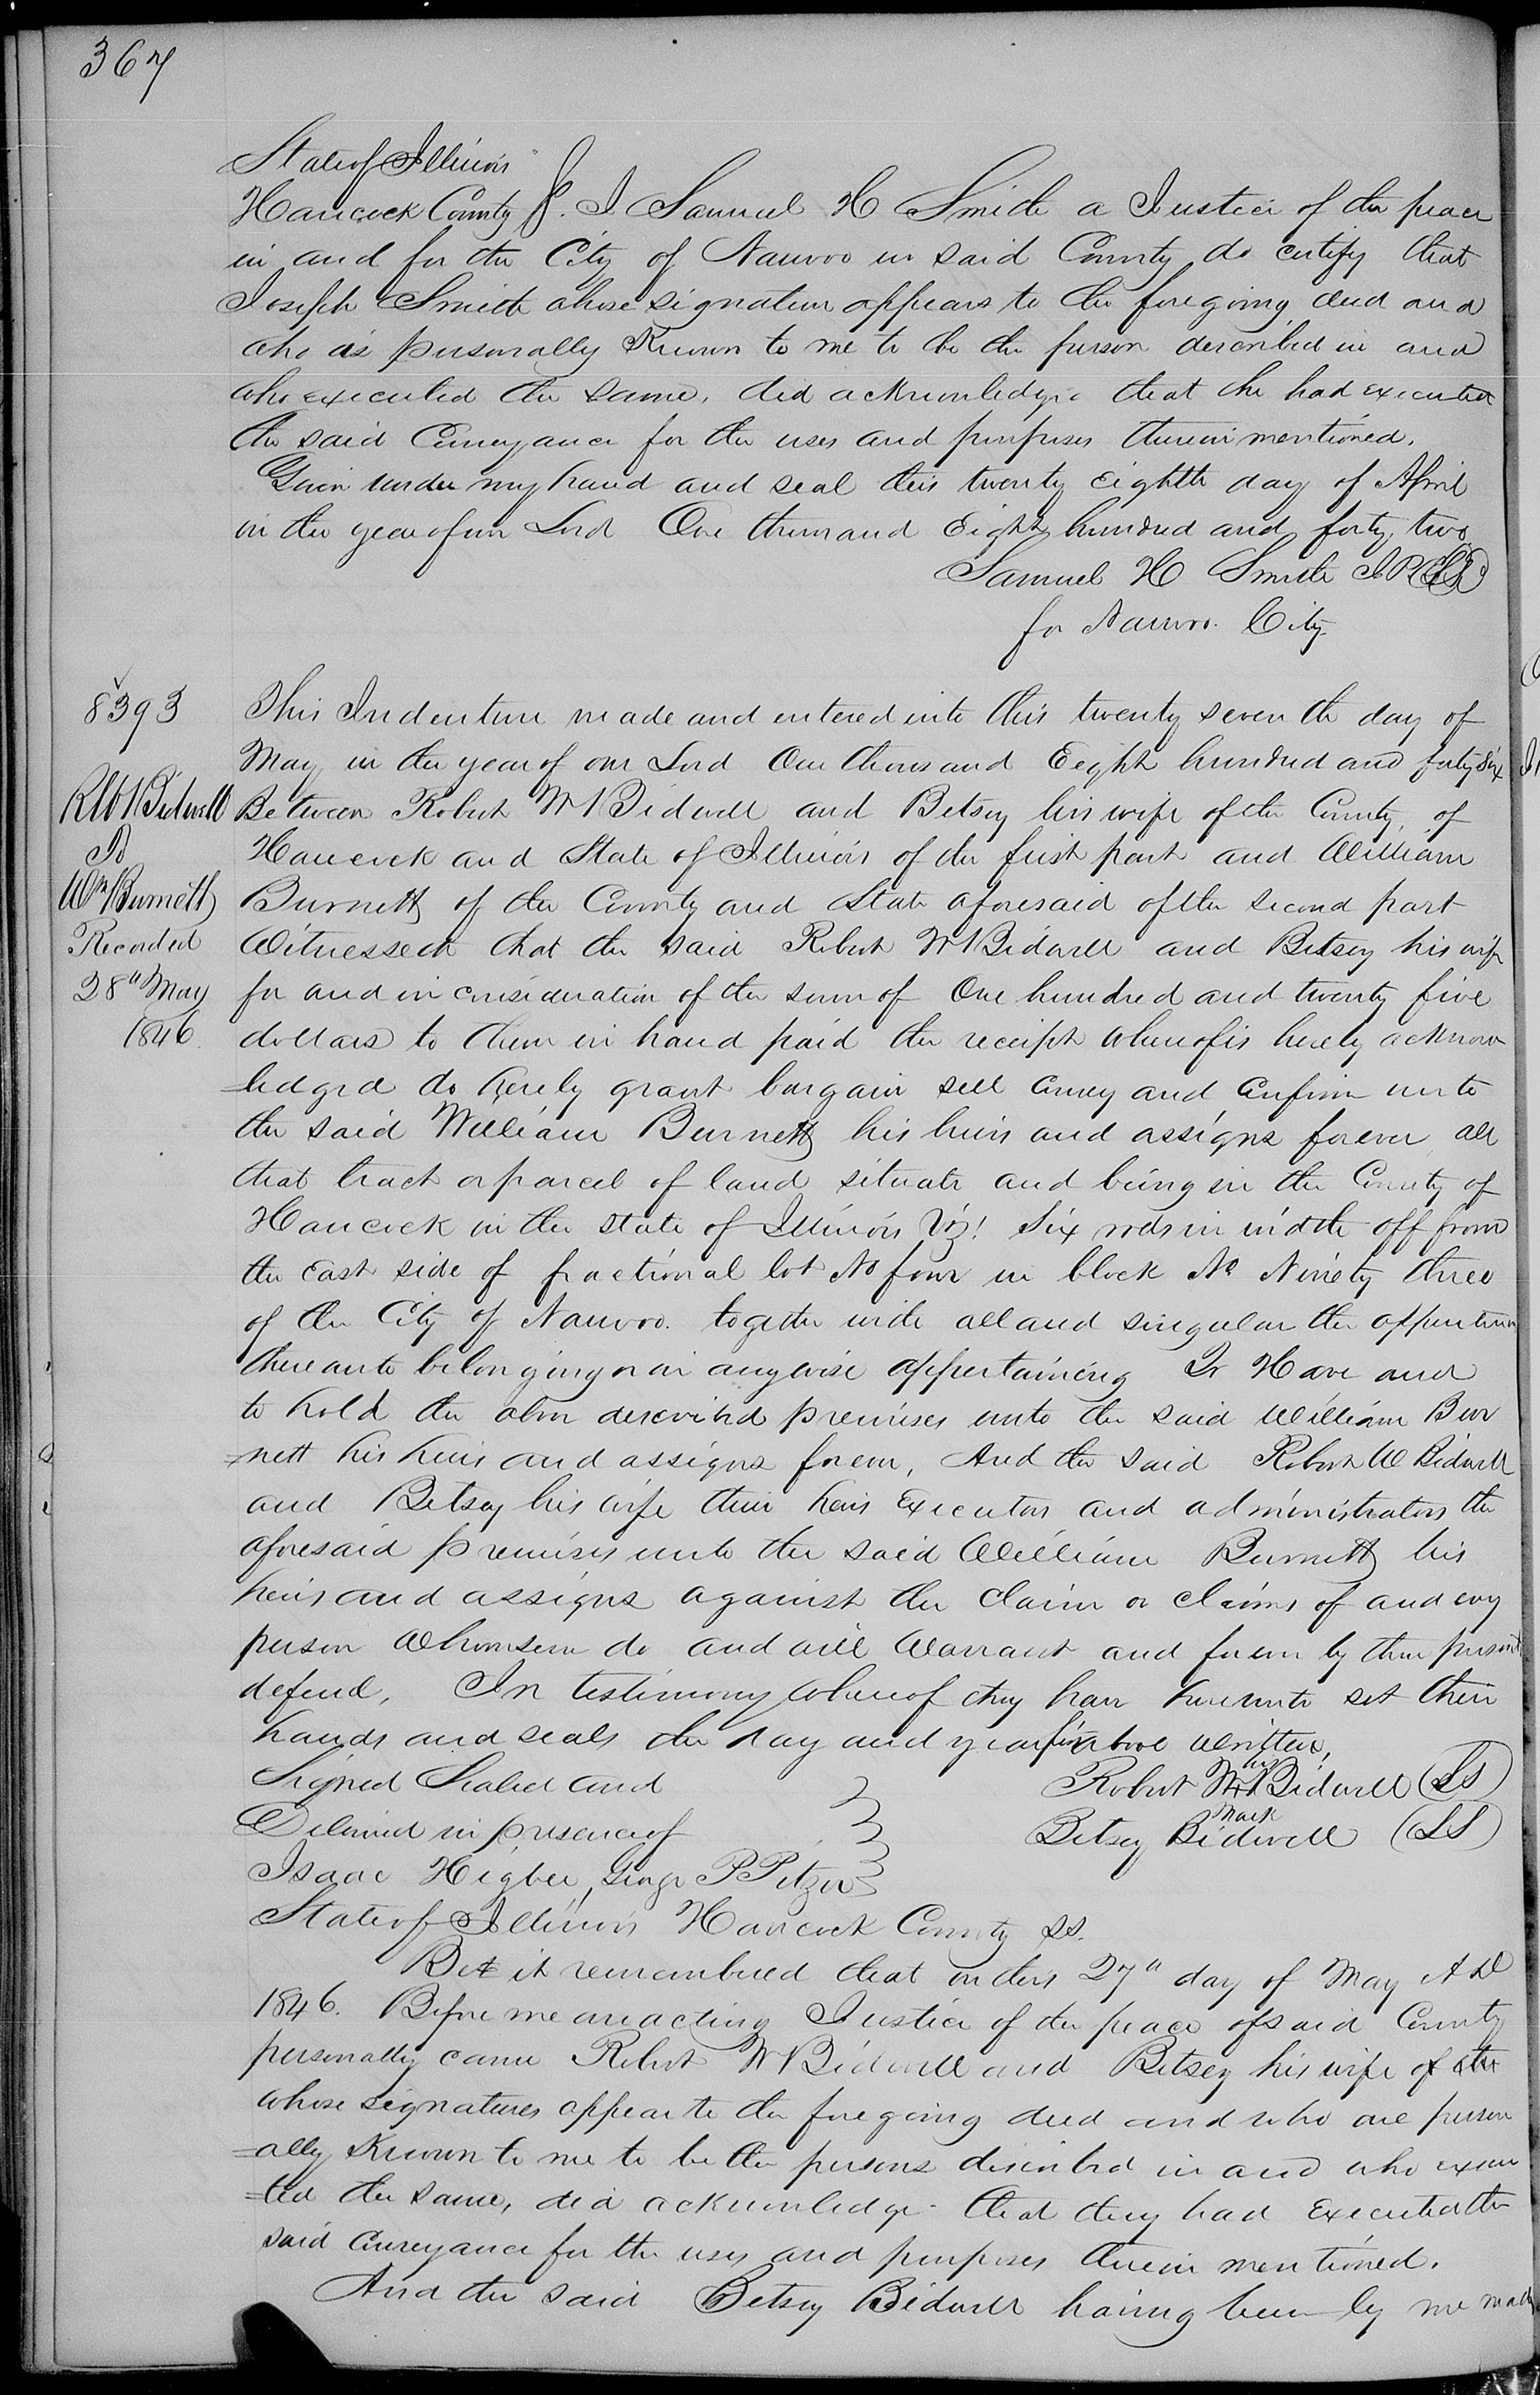 367
State of Illinois
Hancock County }. I Samuel H Smith a Justice of the peace
in and for the City of Nauvoo in said County do certify that
Joseph Smith whose signature appears to the foregoing deed and
who is personally Known to me to be the person described in and
who executed the same, did acknowledge that he had executed
the said Conveyance for the uses and purposes therein mentioned.
Given under my hand and seal this twenty eighth day of April
in the year of our Lord One thousand Eight hundred and forty, two
Samuel H Smith J.P. (LS)
for Nauvoo. City.
8393
Robt W Bidwell
To
Wm Burnett
Recorded
28th May
1846.
This Indenture made and entered into this twenty seventh day of
May in the year of our Lord One thousand Eight hundred and forty six
Between Robert W Bidwell and Betsey his wife of the County, of
Hancock and State of Illinois of the first part and William
Burnett of the County and State aforesaid of the second part
Witnesseth that the said Robert W Bidwell and Betsey his wife
for and in consideration of the sum of One hundred and twenty five
dollars to them in hand paid the receipt whereof is hereby acknow
=ledged do hereby grant bargain sell convey and confirm unto
the said William Burnett his heirs and assigns forever all
that tract or parcel of land situate and being in the County of
Hancock in the State of Illinois Viz! Six rods in width off from
the East side of fractional lot No four in block No Ninety three
of the City of Nauvoo. together with all and singular the appurtenan
thereunto belonging or in anywise appertaining To Have and
to hold the above described premises unto the said William Bur
=nett his heirs and assigns forever, And the said Robert W Bidwell
and Betsey his wife their heirs Executors and administrators the
aforesaid premises unto the said William Burnett his
heirs and assigns against the claim or claims of and evry
person Whomsoever do and will Warrant and forever by these presents
defend, In testimony whereof they have hereunto set their
hands and seals the day and year first above written,
Signed Sealed and
Delivered in presence of
Isaac Higbee, George P Stizer
his
Robert W X Bidwell (LS)
Mark
Betsey Bidwell (LS)
State of Illinois Hancock County SS.
Be it remembered that on this 27th day of May AD
1846. Before me an acting Justice of the peace of said County
personally came Robert W Bidwell and Betsey his wife of the
whose signatures appear to the foregoing deed and who are person
=ally Known to me to be the persons described in and who execu
=ted the same, did acknowledge that they had Executed the
said conveyance for the uses and purposes therein mentioned.
And the said Betsey Bidwell having been by me made